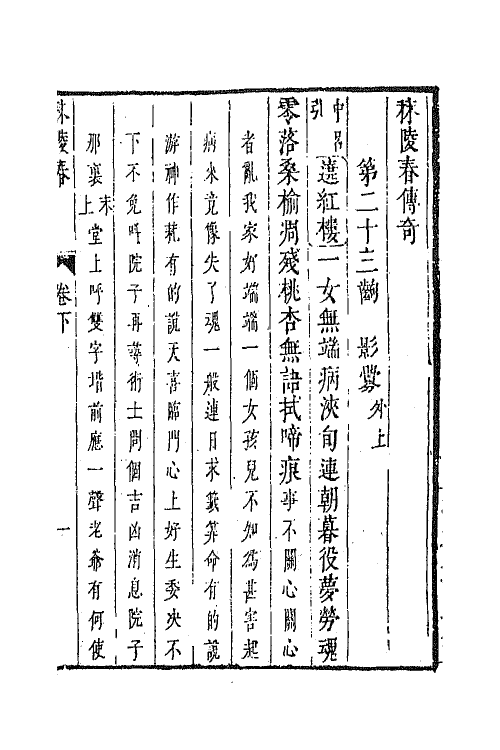 秣陵春傳奇
第二十三齣 影釁 外上
中呂引 遶紅樓 一女無端病浹旬連朝暮役夢勞魂
零落桑榆凋殘桃杏無語拭啼痕 事不關心關心
者亂我家好端端一個女孩兒不知爲甚害起
病來竟像失了魂一般連日求籤筭命有的說
游神作耗有的說天喜臨門心上好生委决不
下不免呼院子再尋術士問個吉凶消息院子
那裏 末上 堂上呼雙字堦前應一聲老爺有何使
秣陵春 卷下 一